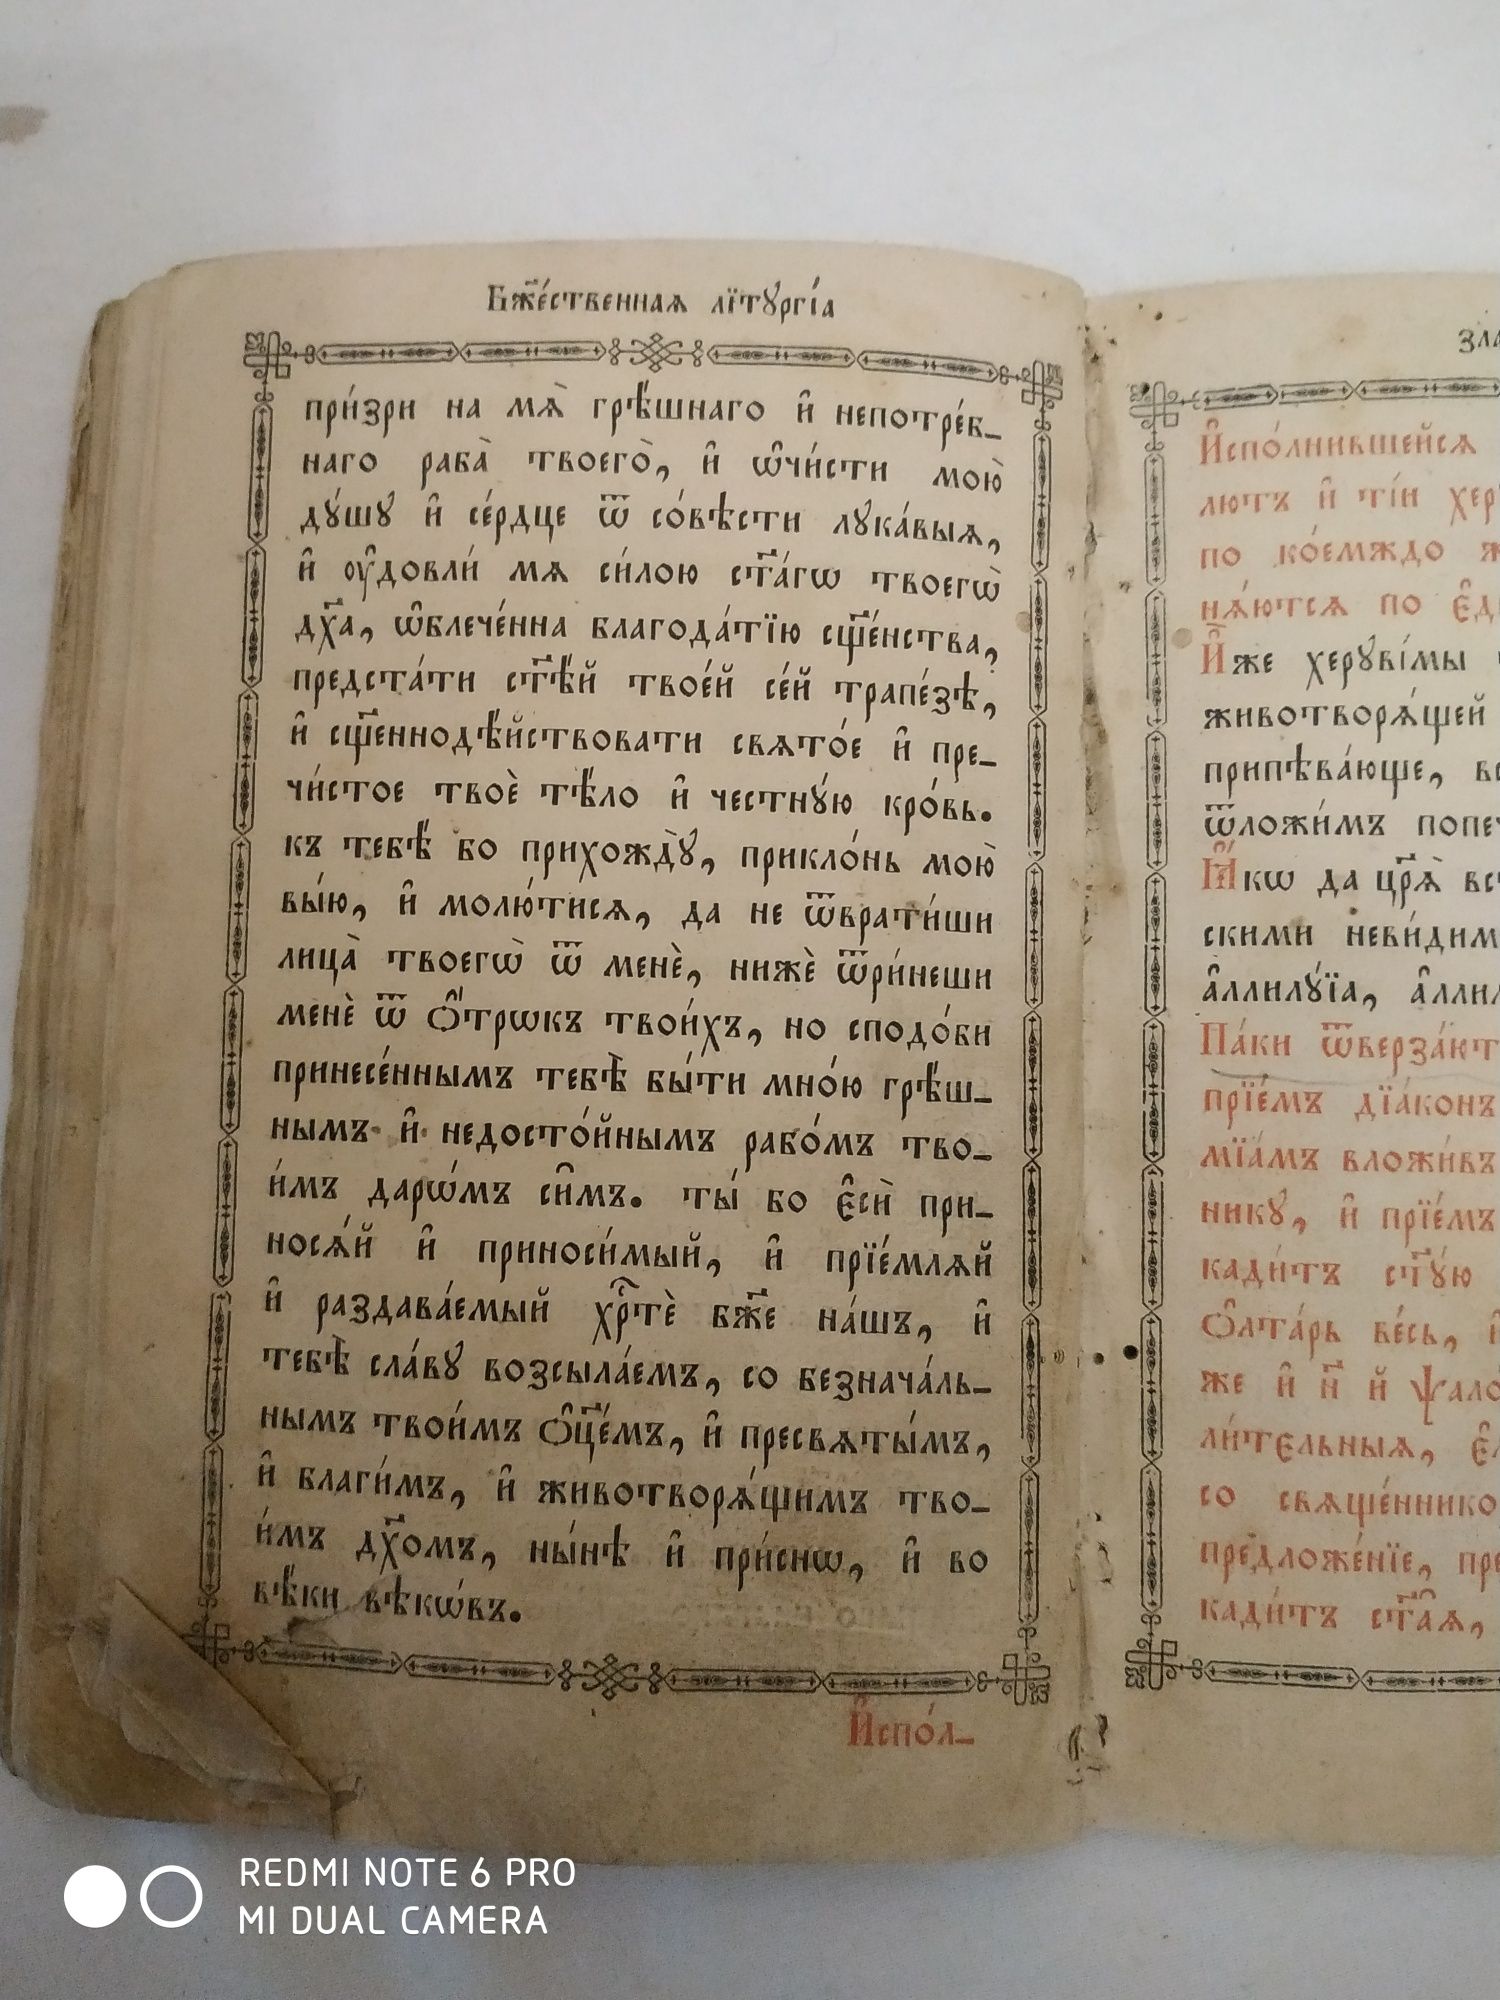 Бж҃е́ственная лїтꙋргі́а
при́зри на мѧ̀ грѣ́шнаго и҆ непотре́б-
наго раба̀ твоего̀, и҆ ѡ҆чи́сти мою̀
дꙋ́шꙋ и҆ се́рдце ѿ со́вѣсти лꙋка́выѧ,
и҆ оу҆довли́ мѧ си́лою ст҃а́гѡ твоегѡ̀
дх҃а, ѡ҆блече́нна благода́тїю сщ҃е́нства,
предста́ти ст҃ѣ́й твое́й се́й трапе́зѣ,
и҆ сщ҃еннодѣ́йствовати свѧто́е и҆ пре-
чи́стое твоѐ тѣ́ло и҆ честнꙋ́ю кро́вь.
къ тебѣ́ бо прихождꙋ̀, прикло́нь мою̀
вы́ю, и҆ молю́тисѧ, да не ѿврати́ши
лица̀ твоегѡ̀ ѿ менѐ, нижѐ ѿри́неши
менѐ ѿ ѻ҆́трѡкъ твои́хъ, но сподо́би
принесе́ннымъ тебѣ̀ бы́ти мно́ю грѣ́ш-
нымъ и҆ недосто́йнымъ рабо́мъ тво-
и́мъ дарѡ́мъ си̑мъ. ты́ бо є҆сѝ при-
носѧ́й и҆ приноси́мый, и҆ прїе́млѧй
и҆ раздава́емый хрⷭ҇тѐ бж҃е на́шъ, и҆
тебѣ̀ сла́вꙋ возсыла́емъ, со безнача́ль-
нымъ твои́мъ ѻ҆ц҃е́мъ, и҆ пресвѧты́мъ,
и҆ благи́мъ, и҆ животворѧ́щимъ тво-
и́мъ дх҃омъ, ны́нѣ и҆ при́снѡ, и҆ во
вѣ́ки вѣкѡ́въ.
И҆спо́л-
зла
И҆спо́лнившейсѧ
лютъ и҆ ті́и хер
по ко́емждо ж
нѧ́ютсѧ по є҆д
И҆̀же херꙋві́мы
животворѧ́щей
припѣва́юще, вс
ѿложи́мъ попе
Ꙗ҆́кѡ да цр҃ѧ̀ вс
скими неви́дим
а҆ллилꙋ́їа, а҆ллил
Па́ки ѿверза́ют
прїе́мъ дїа́конъ
мїа́мъ вложи́въ
никꙋ, и҆ прїе́мъ
кади́тъ ст҃ꙋ́ю
ѻ҆лта́рь ве́сь, и҆
же и҆ н҃ й ѱало
ли́тельныѧ, є҆л
со свѧще́ннико
предложе́нїе, пре
кади́тъ ст҃а̑ѧ,
REDMI NOTE 6 PRO
MI DUAL CAMERA